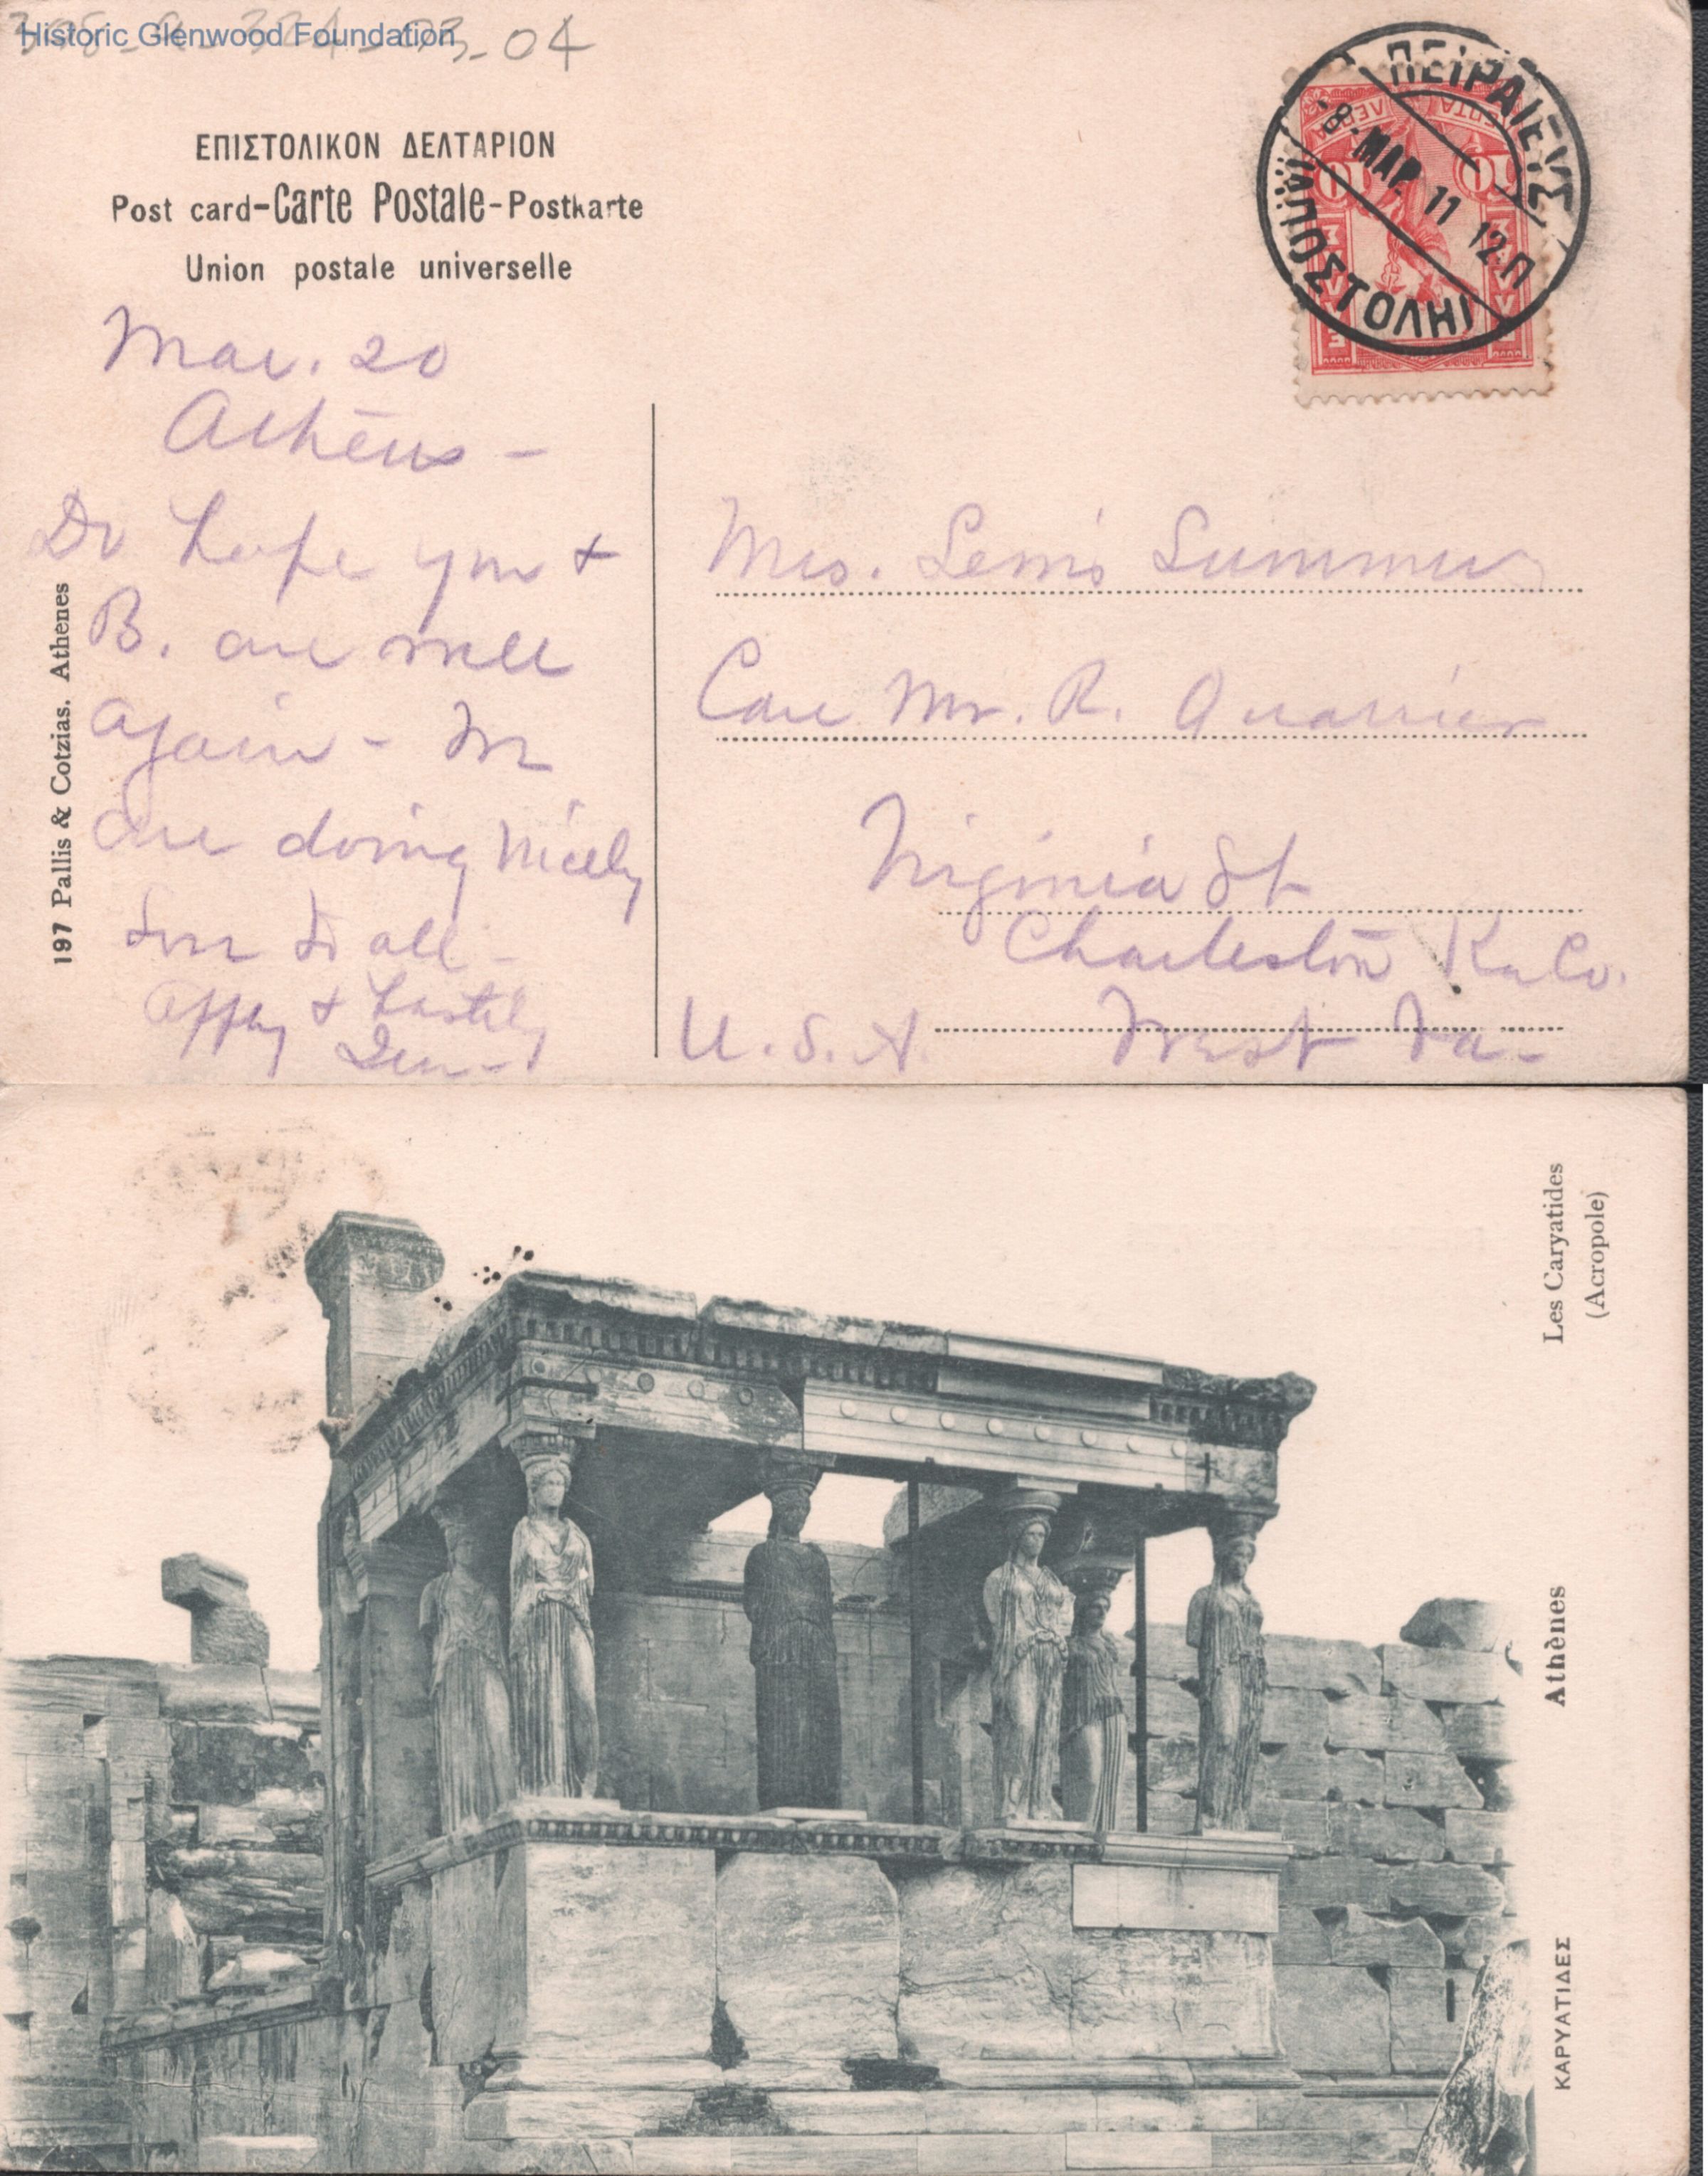 Historic Glenwood Foundation
04
ΕΠΙΣΤΟΛΙΚΟΝ ΔΕΛΤΑΡΙΟΝ
Post card-Carte Postale-Postkarte
Union postale universelle
ΠΕΙΡΑΙΕΥΣ
8. ΜΑΡ. 11 12.Π
ΑΠΟΣΤΟΛΗ
ΛΕΠΤΑ ΛΕΠΤΑ
10 10
Mar. 20
Athens -
Do hope you +
B. are well
again - We
are doing nicely
Love to all -
Affly + hastily
197 Pallis & Cotzias. Athenes
Mrs. Lewis Summers
Care Mr. R. Quarrier
Virginia St
Charleston Ka Co.
U.S.A. West Va-
Les Caryatides
(Acropole)
Athènes
ΚΑΡΥΑΤΙΔΕΣ